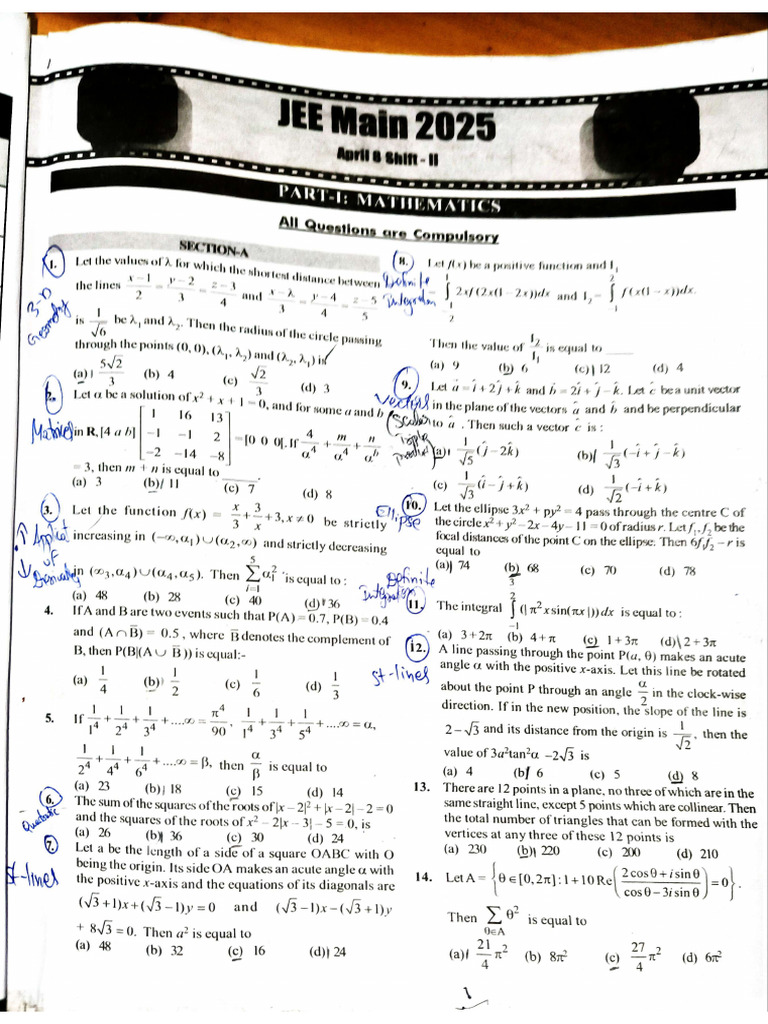 JEE Main 2025
April 8 Shift - II
PART-I: MATHEMATICS
All Questions are Compulsory
SECTION-A
1. Let the values of λ for which the shortest distance between
the lines (x−1)/2 = (y−2)/3 = (z−3)/4 and (x−λ)/3 = (y−4)/4 = (z−5)/5
is 1/√6 be λ₁ and λ₂. Then the radius of the circle passing
through the points (0, 0), (λ₁, λ₂) and (λ₂, λ₁) is
(a) 5√2/3 (b) 4 (c) √2/3 (d) 3
3-D Geometry
2. Let α be a solution of x² + x + 1 = 0, and for some a and b
in R, [4 a b] [1 16 13; −1 −1 2; −2 −14 −8] = [0 0 0]. If 4/α⁴ + m/αᵃ + n/αᵇ
= 3, then m + n is equal to ____
(a) 3 (b) 11 (c) 7 (d) 8
Matrices
3. Let the function f(x) = x/3 + 3/x + 3, x ≠ 0 be strictly
increasing in (−∞, α₁) ∪ (α₂, ∞) and strictly decreasing
in (∞₃, α₄) ∪ (α₄, α₅). Then ⁵∑ᵢ₌₁ αᵢ² is equal to :
(a) 48 (b) 28 (c) 40 (d) 36
of
4. If A and B are two events such that P(A) = 0.7, P(B) = 0.4
and (A ∩ B̄) = 0.5 , where B̄ denotes the complement of
B, then P(B|(A ∪ B̄)) is equal:-
(a) 1/4 (b) 1/2 (c) 1/6 (d) 1/3
5. If 1/1⁴ + 1/2⁴ + 1/3⁴ + ....∞ = π⁴/90, 1/1⁴ + 1/3⁴ + 1/5⁴ + ....∞ = α,
1/2⁴ + 1/4⁴ + 1/6⁴ + ....∞ = β, then α/β is equal to
(a) 23 (b) 18 (c) 15 (d) 14
6. The sum of the squares of the roots of |x − 2|² + |x − 2| − 2 = 0
and the squares of the roots of x² − 2|x − 3| − 5 = 0, is
(a) 26 (b) 36 (c) 30 (d) 24
Quadratic
7. Let a be the length of a side of a square OABC with O
being the origin. Its side OA makes an acute angle α with
the positive x-axis and the equations of its diagonals are
(√3 + 1)x + (√3 − 1)y = 0 and (√3 − 1)x − (√3 + 1)y
+ 8√3 = 0. Then a² is equal to
(a) 48 (b) 32 (c) 16 (d) 24
St-lines
8. Let f(x) be a positive function and I₁
= ∫ 2xf(2x(1 − 2x))dx and I₂ = ∫ f(x(1 − x))dx.
Then the value of I₂/I₁ is equal to ____
(a) 9 (b) 6 (c) 12 (d) 4
Definite Integration
9. Let â = î + 2ĵ + k̂ and b̂ = 2î + ĵ − k̂. Let ĉ be a unit vector
in the plane of the vectors a and b and be perpendicular
to â . Then such a vector ĉ is :
(a) 1/√5 (ĵ − 2k̂) (b) 1/√3 (−î + ĵ − k̂)
(c) 1/√3 (î − ĵ + k̂) (d) 1/√2 (−î + k̂)
Vectors
(Scalar triple product)
10. Let the ellipse 3x² + py² = 4 pass through the centre C of
the circle x² + y² − 2x − 4y − 11 = 0 of radius r. Let f₁, f₂ be the
focal distances of the point C on the ellipse. Then 6f₁f₂ − r is
equal to
(a) 74 (b) 68 (c) 70 (d) 78
Ellipse
11. The integral ∫ (|π²x sin(πx|))dx is equal to :
(a) 3 + 2π (b) 4 + π (c) 1 + 3π (d) 2 + 3π
Definite Integration
12. A line passing through the point P(α, θ) makes an acute
angle α with the positive x-axis. Let this line be rotated
about the point P through an angle α/2 in the clock-wise
direction. If in the new position, the slope of the line is
2 − √3 and its distance from the origin is 1/√2, then the
value of 3a²tan²α − 2√3 is
(a) 4 (b) 6 (c) 5 (d) 8
St-lines
13. There are 12 points in a plane, no three of which are in the
same straight line, except 5 points which are collinear. Then
the total number of triangles that can be formed with the
vertices at any three of these 12 points is
(a) 230 (b) 220 (c) 200 (d) 210
14. Let A = {θ ∈ [0, 2π] : 1 + 10 Re((2cosθ + i sinθ)/(cosθ − 3i sinθ)) = 0}.
Then ∑ θ² is equal to
θ∈A
(a) 21/4 π² (b) 8π² (c) 27/4 π² (d) 6π²